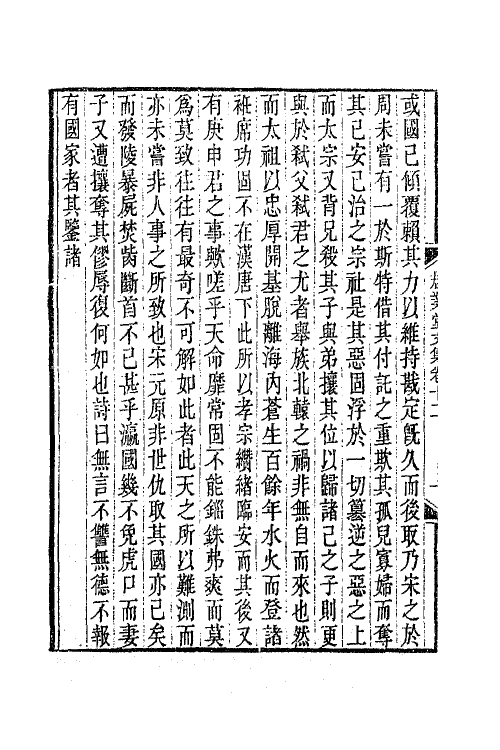 或國已傾覆賴其力以維持戡定旣久而後取乃宋之於
周未嘗有一於斯特借其付託之重欺其孤兒寡婦而奪
其已安已治之宗社是其惡固浮於一切簒逆之惡之上
而太宗又背兄殺其子與弟攘其位以歸諸己之子則更
與於弒父弒君之尤者舉族北轅之禍非無自而來也然
而太祖以忠厚開基脫離海內蒼生百餘年水火而登諸
袵席功固不在漢唐下此所以孝宗纘緒臨安而其後又
有庚申君之事歟嗟乎天命靡常固不能錙銖弗爽而莫
爲莫致往往有最奇不可解如此者此天之所以難測而
亦未嘗非人事之所致也宋元原非世仇取其國亦已矣
而發陵暴屍焚齒斷首不已甚乎瀛國幾不免虎口而妻
子又遭攘奪其僇辱復何如也詩曰無言不讐無德不報
有國家者其鑒諸
堂文集卷十二